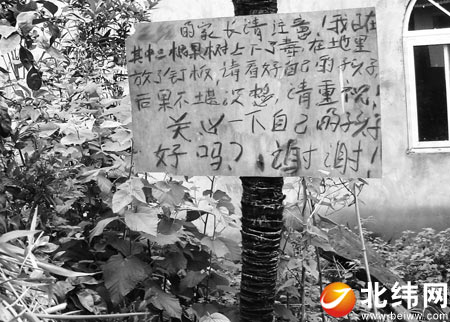 的家长请注意！我在
其中二棵果树上下了毒，在地里
放了钉板，请看好自己的孩子
后果不堪，请重视！
关心一下自己的孩子
好吗？谢谢！
北纬网
www.beiww.com